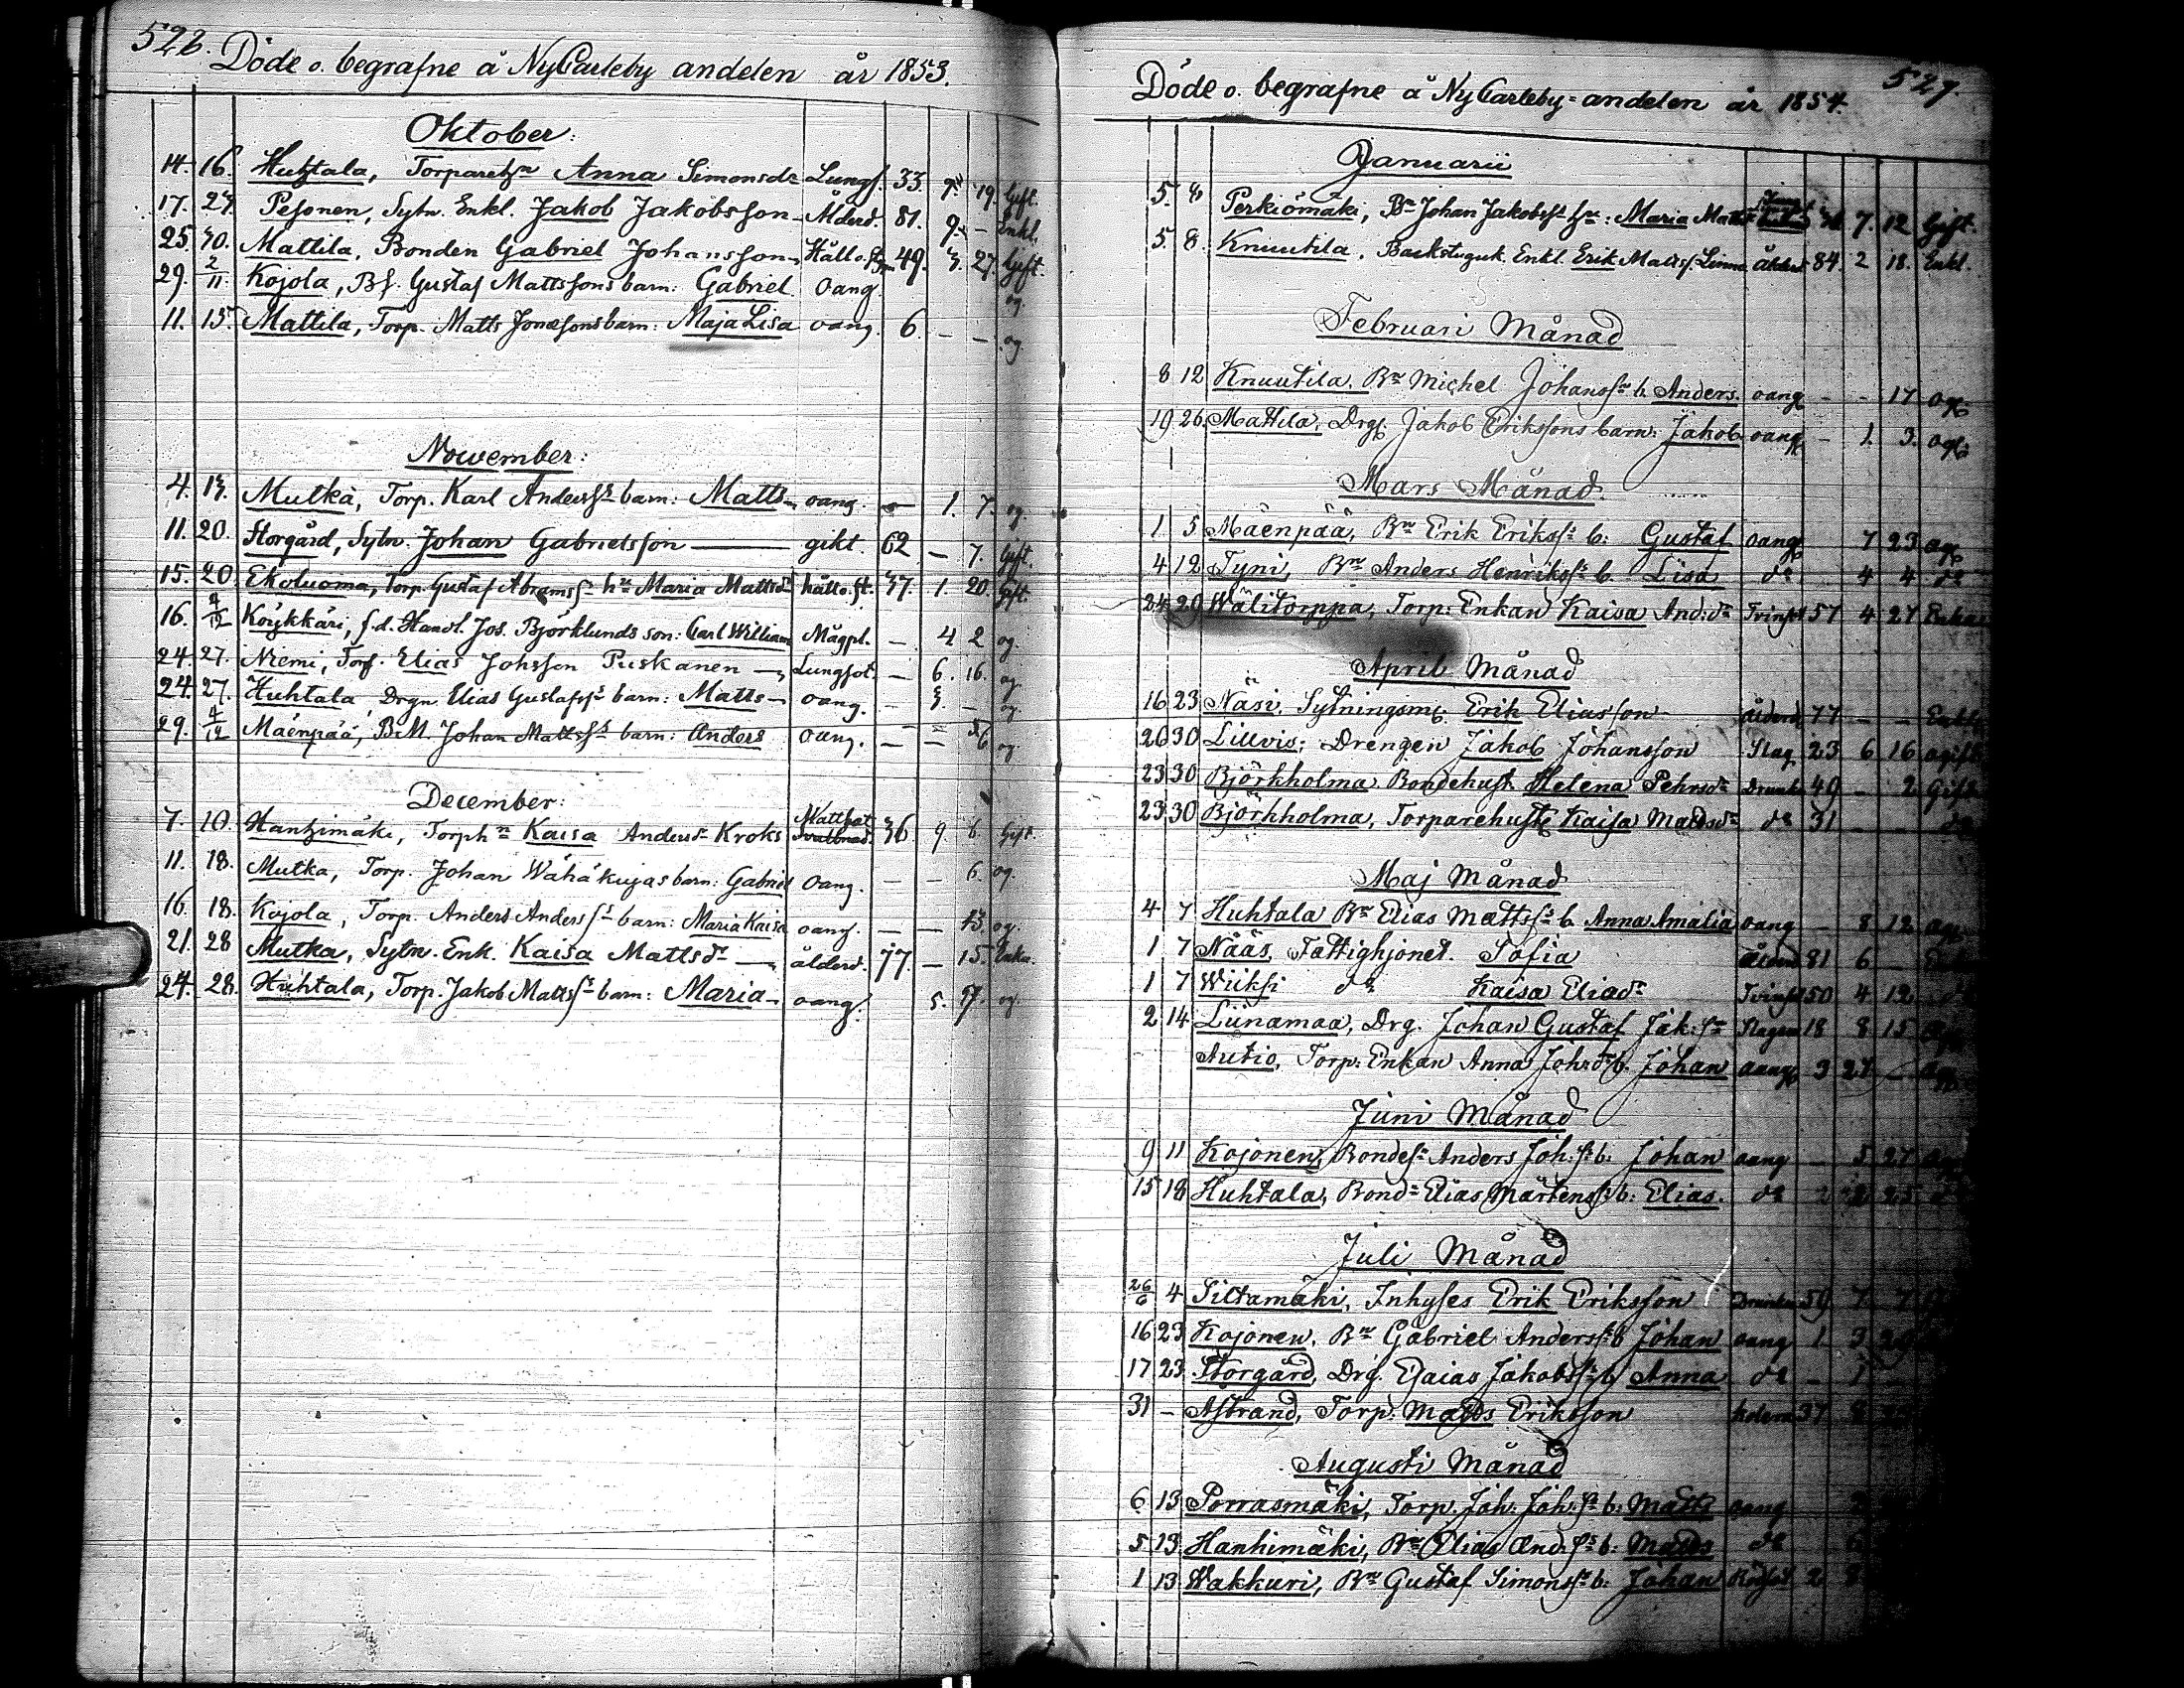 522.
Döde o. begrafne å NyCarleby andelen år 1853.
Oktober:
14. 16. Huhtala, Torpareh Anna Simonsdr Lungs. 33. 9. 19. Gift.
17. 27. Pesonen, Sytn. Enkl. Jakob Jakobsson Ålderd. 81. 9. - Enkl.
25. 30. Mattila, Bonden Gabriel Johansson Håll o. St. 49. 3. 27. Gift.
29. 2/11. Kojola, Bs. Gustaf Mattssons barn: Gabriel oang. og.
11. 15. Mattila, Torp. Matts Jonassons barn: Maja Lisa oang. 6. - - og.
November:
4. 13. Mutka, Torp. Karl Anderss barn: Matts oang. - 1. 7. og.
11. 20. Storgård, Sytn. Johan Gabrielsson gikt. 62 - 7. Gift.
15. 20. Ekoluoma, Torp. Gustaf Abramss hu Maria Mattsdr håll o. st. 37. 1. 20. Gift.
16. 4/12 Köykkäri, f.d. Handl. Jos. Björklunds son: Carl William Mågpl. - 4 2 og.
24. 27. Niemi, Torp. Elias Johsson Puskanen Lungsot. - 6. 16. og.
24. 27. Huhtala, Drgn Elias Gustafss barn: Matts oang. - 3. - og.
29. 4/12 Mäenpää, B.M. Johan Mattss barn: Anders oang. - - 6 og.
December:
7. 10. Hanhimäki, Torph Kaisa Andersdr Kroks 36. 9. 6. Gift.
11. 18. Mutka, Torp. Johan Wähäkujas barn: Gabriel oang. - - 6. og.
16. 18. Kojola, Torp. Anders Anderss barn: Maria Kaisa oang. - - 13. og.
21. 28 Mutka, Sytn. Enk. Kaisa Mattsdr ålderd. 77. - 15. Enka.
24. 28. Huhtala, Torp. Jakob Mattss barn: Maria oang. 5. 17. og.
527.
Döde o. begrafne å NyCarleby-andelen år 1854.
Januarii
5. 8 Perkiömäki, Bn Johan Jakobss hu: Maria 7. 12 Gift.
5. 8. Knuutila, Backstuguk. Enkl. Erik Matss. Linna ålderd 84. 2 18. Enkl.
Februari Månad
8 12 Knuutila, Bn Michel Johanss b. Anders. oang - - 17 og.
19 26 Mattila, Drg. Jakob Erikssons barn: Jakob oang - 1. 3. og.
Mars Månad
1 5 Mäenpää, Bn Erik Erikss b: Gustaf oang 7 23 og
4 12 Tyni, Bn Anders Henrikss b. Lisa do 4 4 do
24 29 Wälitorppa, Torp: Enkan Kaisa And:dr Tvinsot 57 4 27 Enka
April Månad
16 23 Näsi, Sytningsm. Erik Eliasson ålderd 77 - - Enkl
26 30 Liuvis, Drengen Jakob Johansson Slag 23 6 16 ogift
23 30 Björkholma Bondehust Helena Pehrsdr Drunkn 49 - 2 Gift
23 30 Björkholma, Torparehust Kaisa Mattsdr do 31 - - do
Maj Månad
4 7 Huhtala Bn Elias Mattss b. Anna Amalia oang - 8 12 og
1 7 Nääs, Fattighjonet. Sofia Ålderd 81 6 -
1 7 Wiiksi do Kaisa Eliasdr Tvinsot 50 4 12
2 14 Liinamaa, Drg. Johan Gustaf Jak:sn Slagen 18 8 15
Autio, Torp: Enkan Anna Joh:dr b. Johan oang 3 27 - og
Juni Månad
9 11 Kojonen, Bondes Anders Joh:s b: Johan oang - 5 27
15 18 Huhtala, Bond Elias Mårtenss b: Elias. do
Juli Månad
26/6 4 Siltamäki, Inhyses Erik Eriksson 59 7
16 23 Kojonen, Bn Gabriel Anderss b Johan oang 1 3
17 23 Storgård, Drg. Esaias Jakobss b Anna do - 1
31 - Åstrand, Torp. Matts Eriksson kolera 37
Augusti Månad
6 13 Porrasmäki, Torp. Joh. Joh:s b: Matts oang
5 13 Hanhimäki, Bn Elias And:s b: Matts do
1 13 Wakkuri, Bn Gustaf Simonss b: Johan